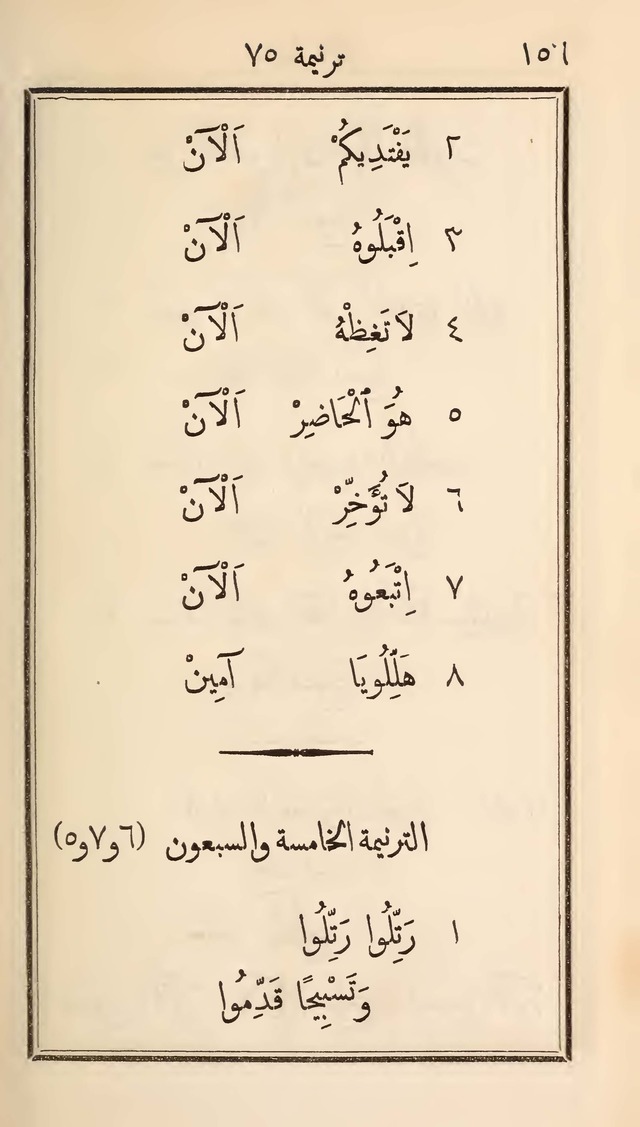 ١٥٦ ترنيمة ٧٥
٢ يَفْتَدِيكُمْ اَلْآنْ
٣ اِقْبَلُوهُ اَلْآنْ
٤ لاَ تَغِظْهُ اَلْآنْ
٥ هُوَ ٱلْحَاضِرْ اَلْآنْ
٦ لاَ تُؤَخِّرْ اَلْآنْ
٧ اِتْبَعُوهُ اَلْآنْ
٨ هَلِّلُويَا آمِينْ
الترنيمة الخامسة والسبعون (٦و٧و٥)
١ رَتِّلُوا رَتِّلُوا
وَتَسْبِيحًا قَدِّمُوا